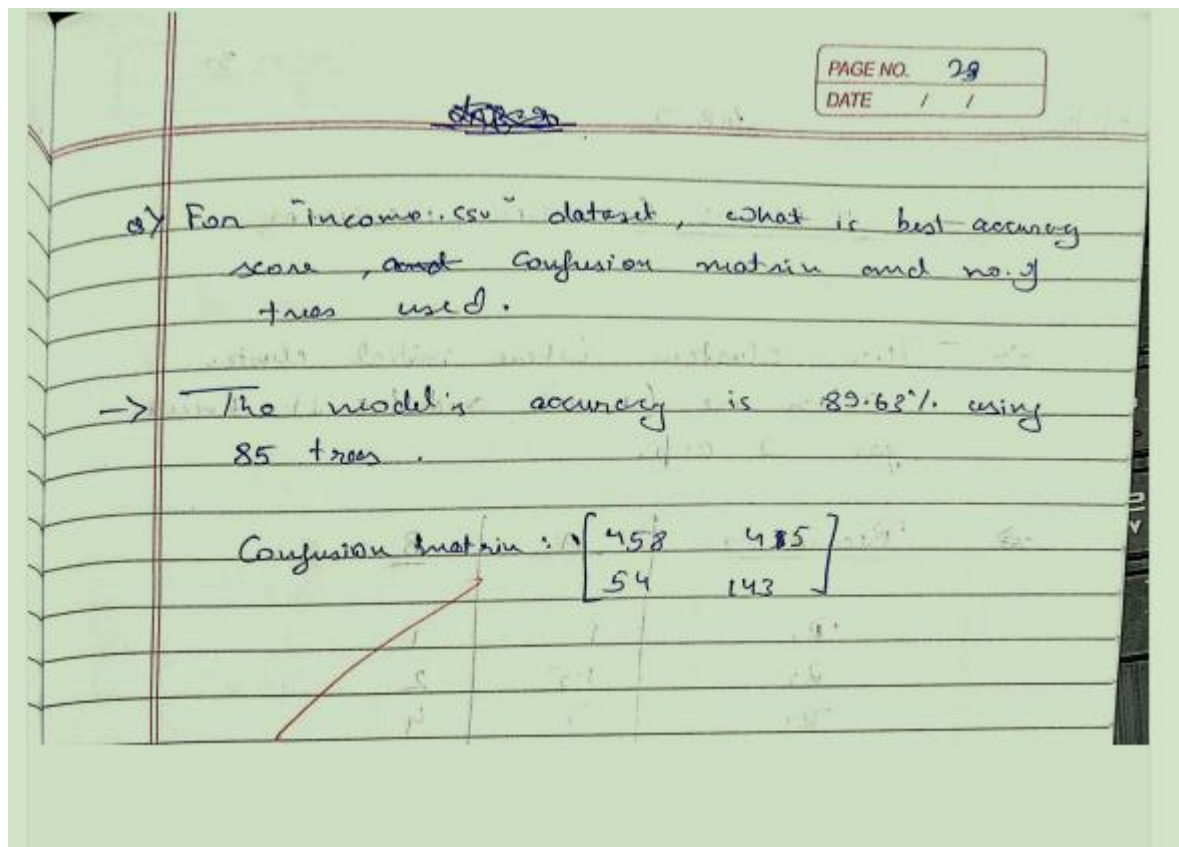 PAGE NO. 28
DATE / /
Q) For "income.csv" dataset, what is best accuracy
score, and Confusion matrix and no. of
trees used.
-> The model's accuracy is 89.63% using
85 trees.
Confusion matrix : [458
54 143]